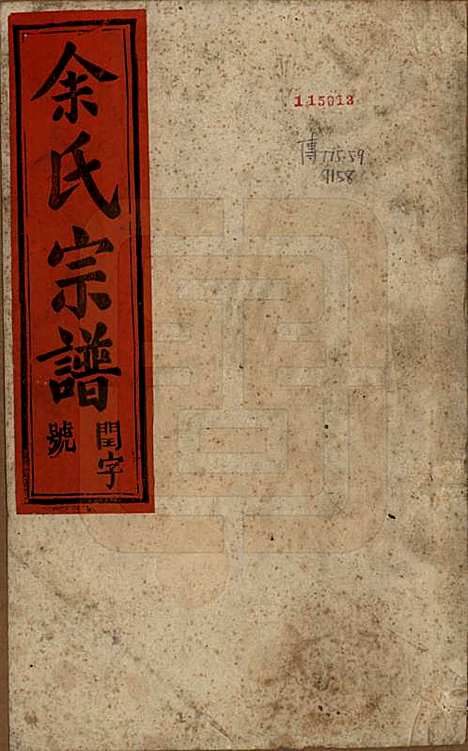 余氏宗譜
閏字
號
115013
傳 775.59
9158